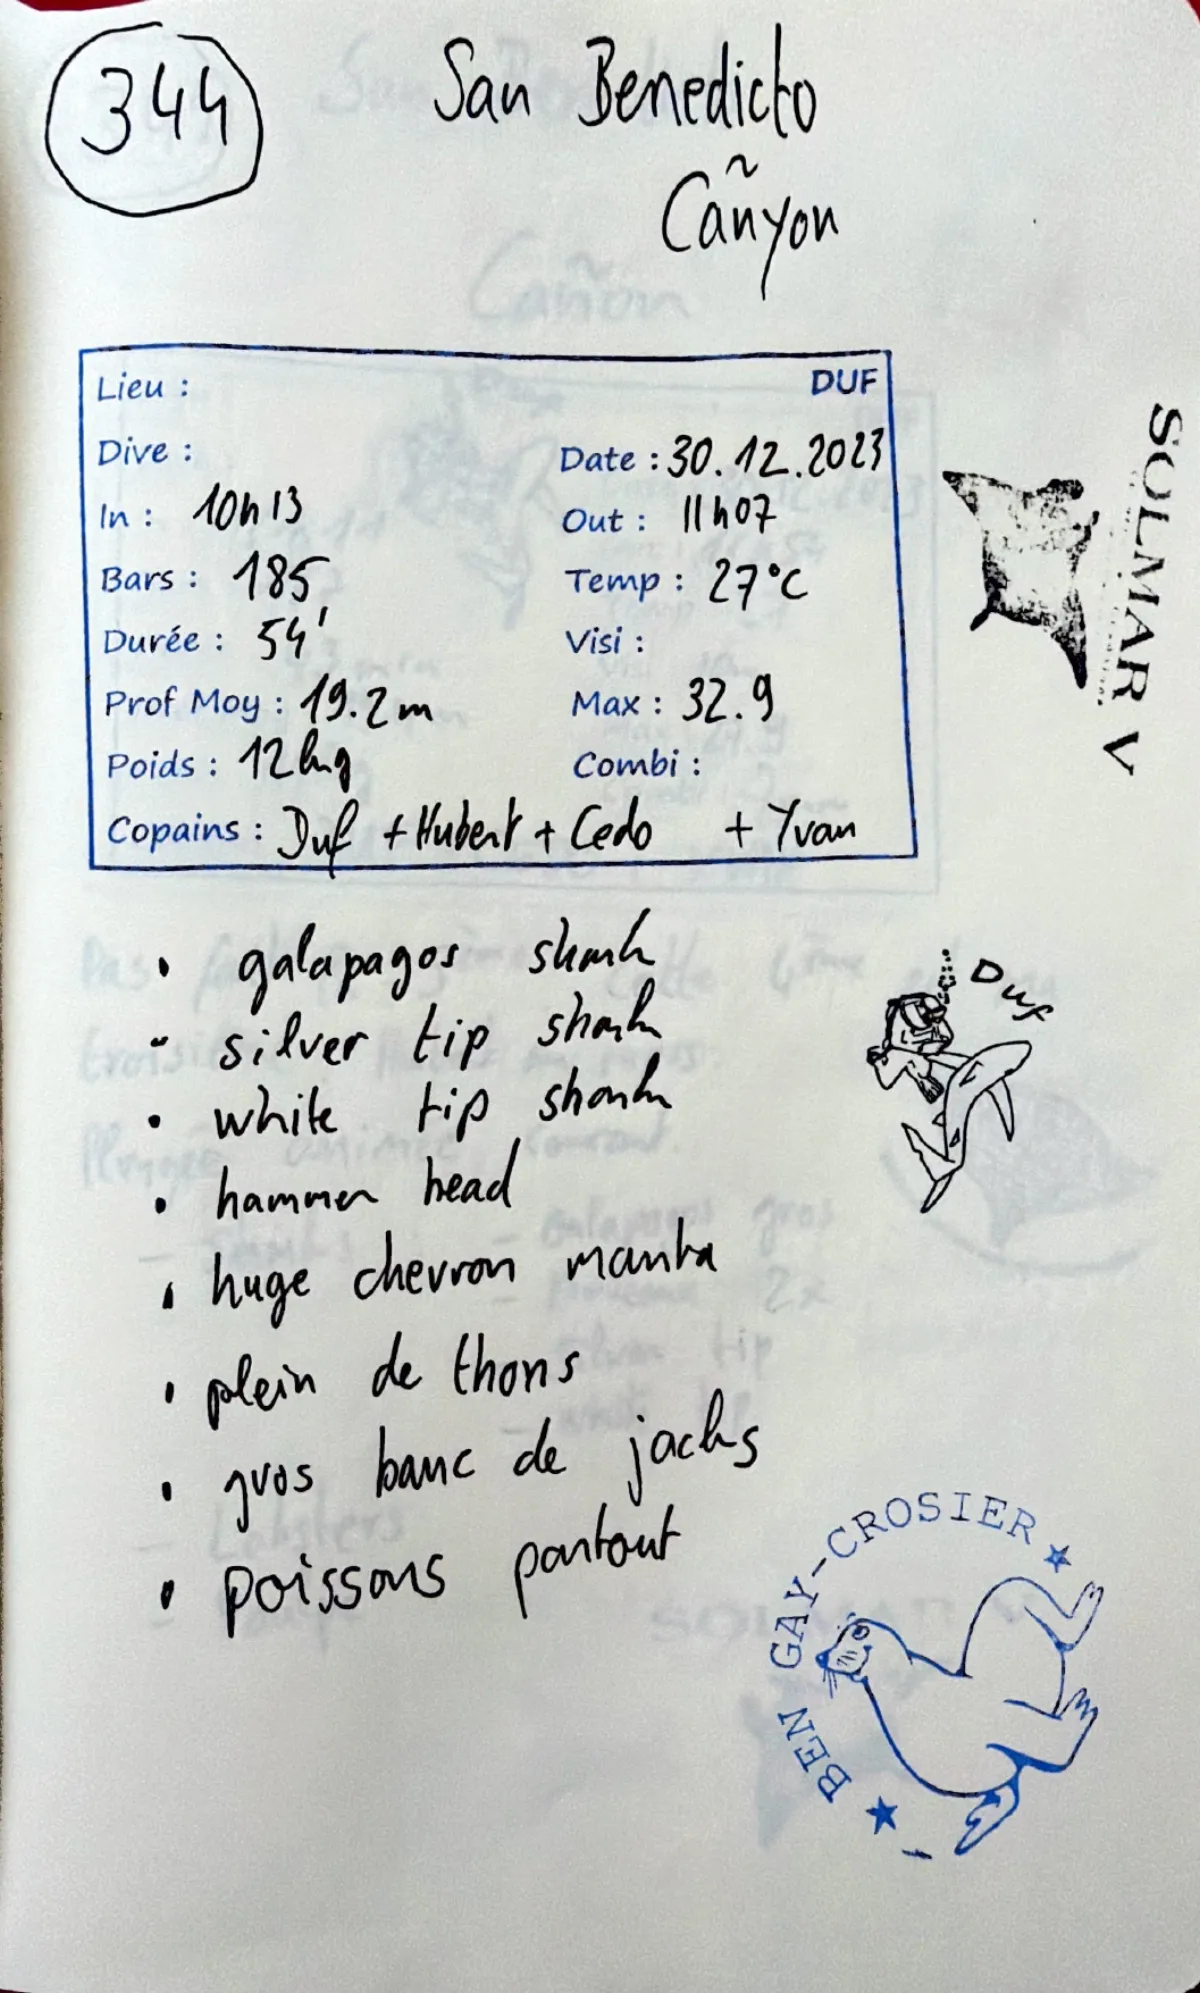 344
San Benedicto
Cañyon
Lieu : DUF
Dive : Date : 30.12.2023
In : 10h13 Out : 11h07
Bars : 185 Temp : 27°C
Durée : 54' Visi :
Prof Moy : 19.2m Max : 32.9
Poids : 12kg Combi :
Copains : Duf + Hubert + Cedo + Yvan
SOLMAR V
• galapagos shark
- silver tip shark
• white tip shark
• hammer head
• huge chevron manta
• plein de thons
• gros banc de jacks
• poissons partout
Duf
BEN GAY-CROSIER